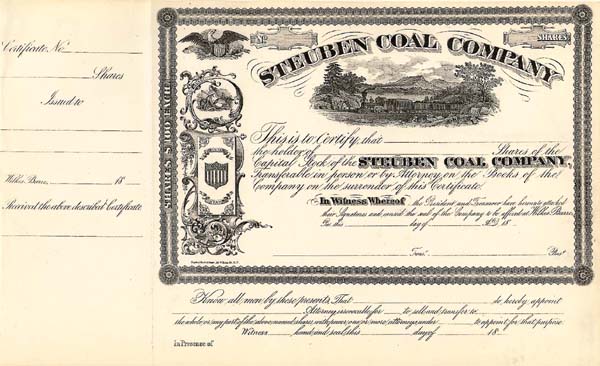 Certificate, No.
Shares
Issued to
Wilkes Barre, 18
Received the above described Certificate
No.
SHARES
STEUBEN COAL COMPANY
This is to Certify, that
the holder of Shares of the
Capital Stock of the STEUBEN COAL COMPANY,
Transferable in person or by Attorney, on the Books of the
Company on the surrender of this Certificate.
In Witness Whereof the President and Treasurer have hereunto attached
their Signatures and caused the seal of the Company to be affixed at Wilkes Barre,
Pa. this day of A.D. 18
Treas. Pres.
Know all men by these presents, That do hereby appoint
Attorney irrevocable for to sell and transfer to
the whole or any part of the above named shares, with power, one or more attorneys under to appoint for that purpose.
Witness hand and seal this day of 18
In Presence of